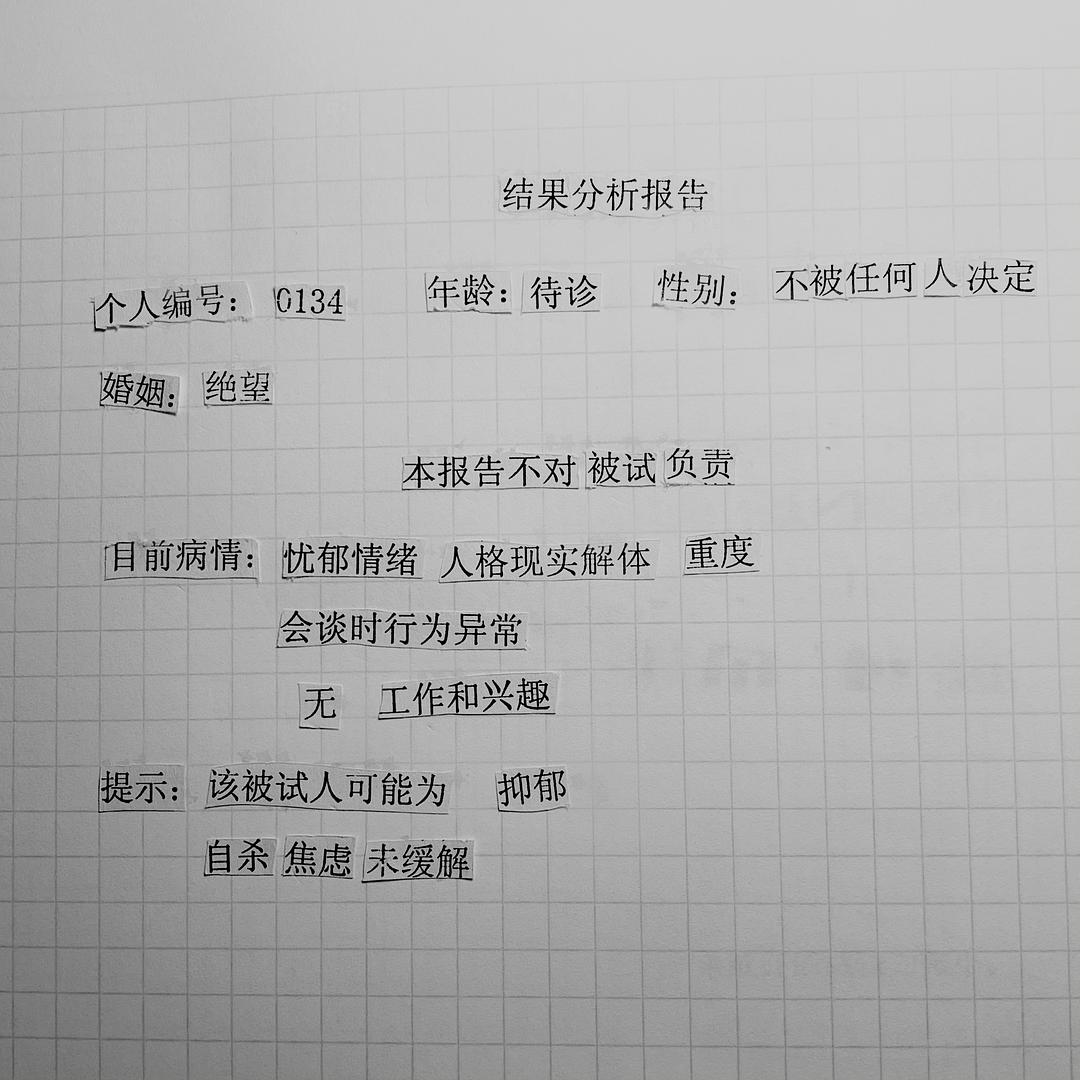 结果分析报告
个人编号： 0134 年龄：待诊 性别： 不被任何人决定
婚姻： 绝望
本报告不对被试负责
目前病情： 忧郁情绪 人格现实解体 重度
会谈时行为异常
无 工作和兴趣
提示： 该被试人可能为 抑郁
自杀 焦虑 未缓解